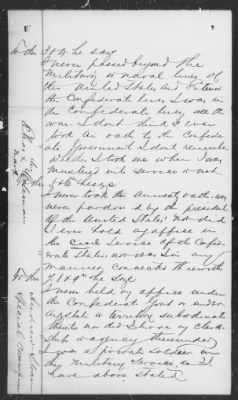 To the 39th he says
I never passed beyond the
Military or naval lines of
the United States, and entered
the Confederate lines, I was in
the Confederate lines, all the
war I dont think I ever
took an oath to the Confede-
rate Government I dont remember
whether I took one when I was
mustered into service or not
To the 40th he says
I never took the Amnesty oath, was
never pardoned by the president
of the United States, nor did
I ever hold any office in
the Civil Service of the Confe-
rate States nor was I in any
manner connected therewith
To the he says
I never held any office under
the Confederate Govt or under
any State or territory subordinate
thereto nor did I have any clerk-
ship or agency thereunder
I was a private soldier in
the Military Service as I
have above stated
his
mark
Special Commissioner